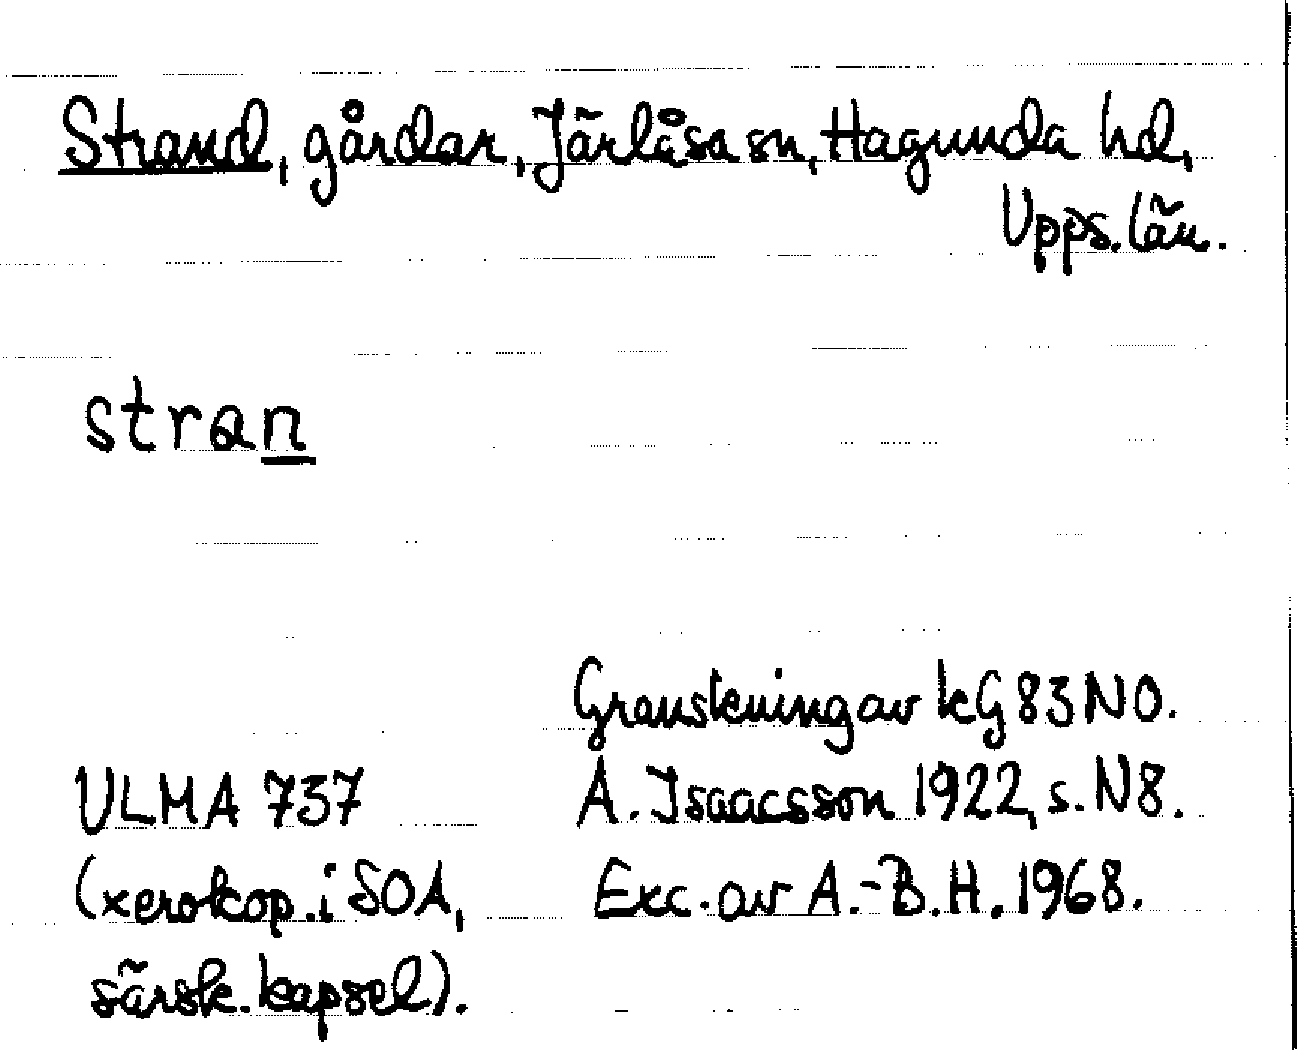 Strand, gårdar, Järlåsa sn, Hagunda hd,
Upps. län.
stran
Granskning av kG 83 NO.
ULMA 737
A. Isaacsson 1922, s. N8.
(xerokop. i SOA,
Exc. av A.-B. H. 1968.
särsk. kapsel).